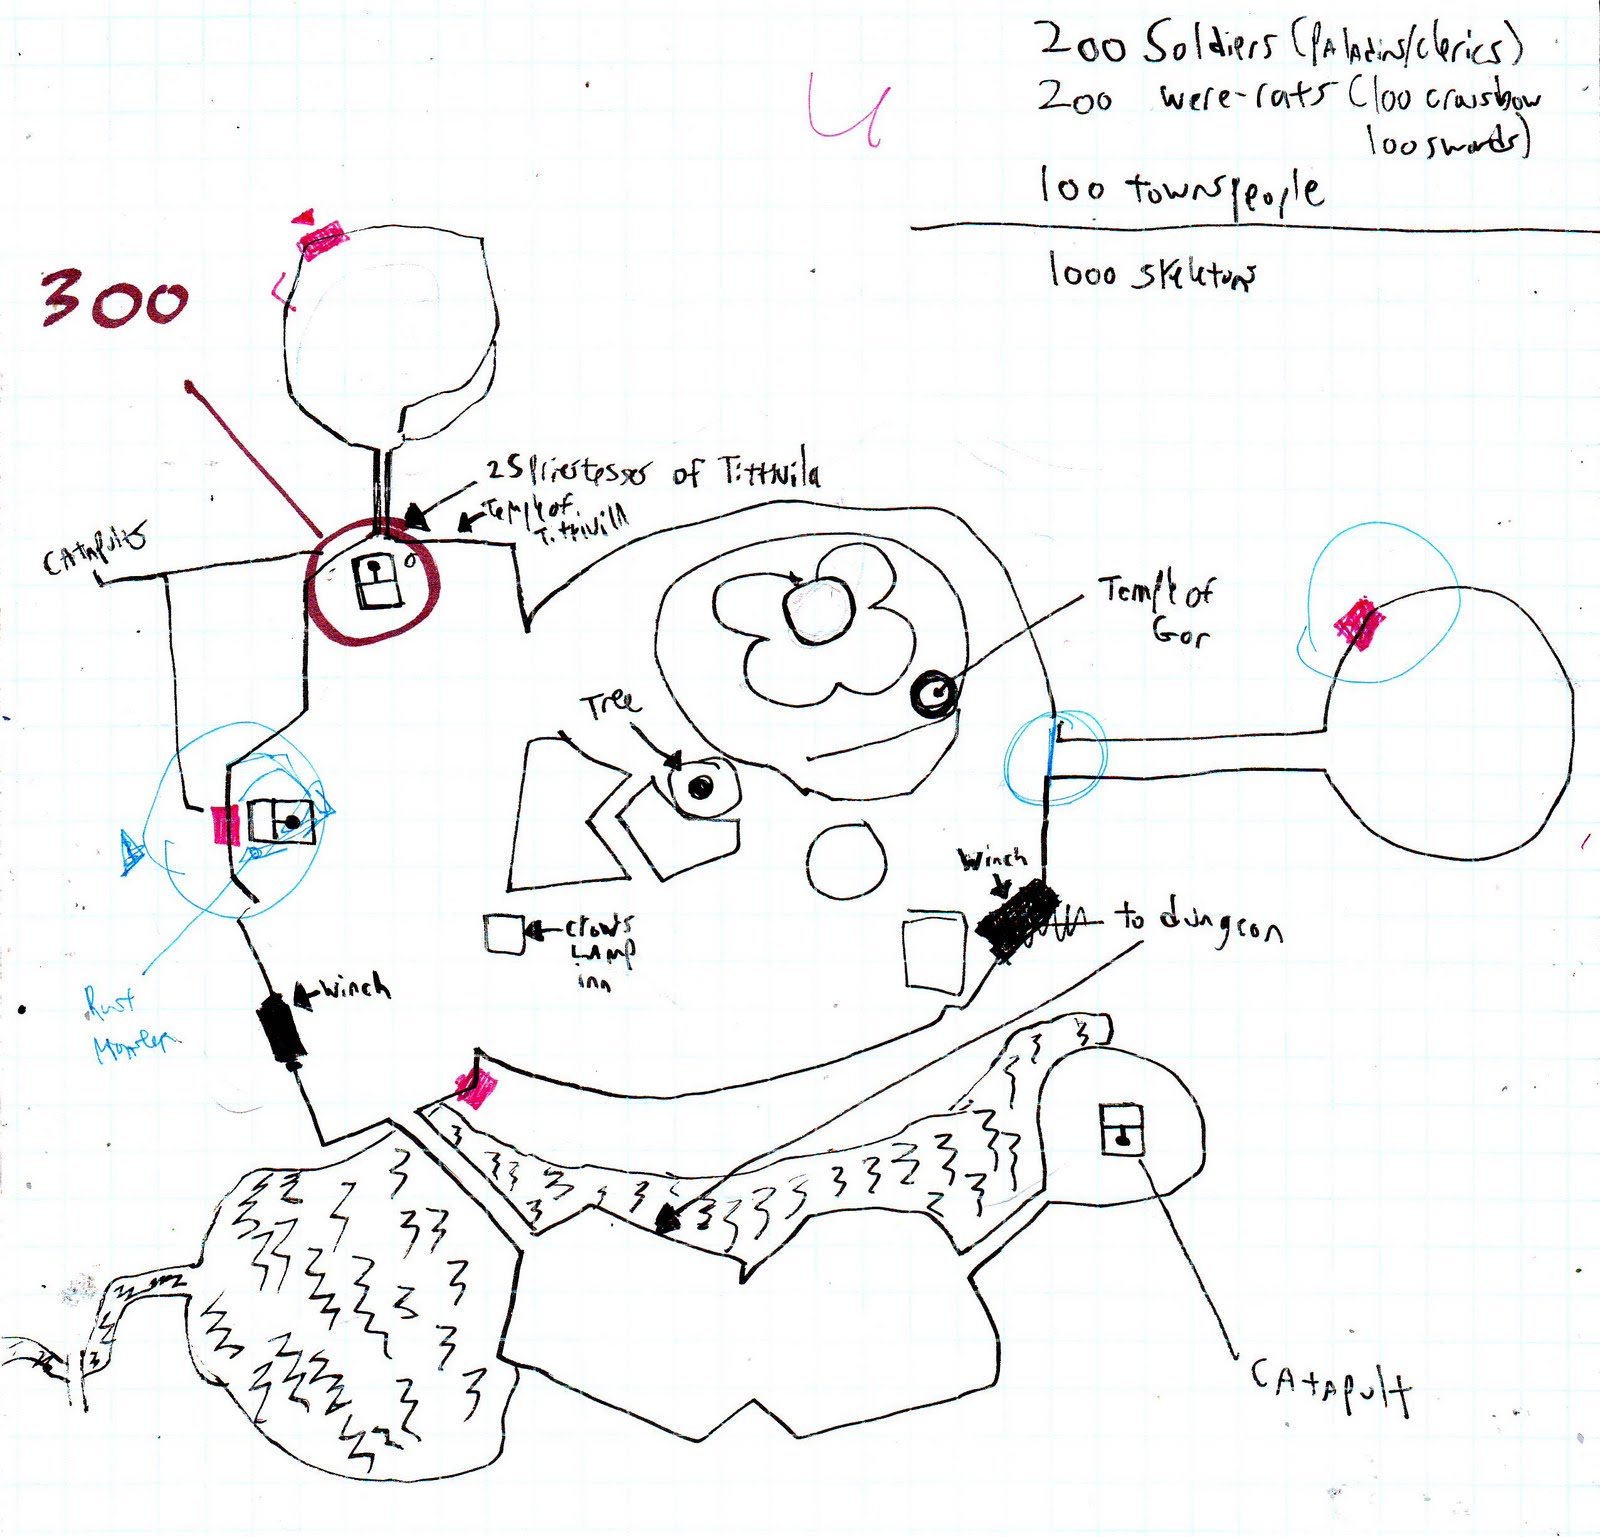 200 Soldiers (PALADINS/clerics)
200 were-rats (100 crowsbow
100 swords)
100 townspeople
1000 skeletons
300
25 Priestesses of Tittivila
Temple of
Tittivill
CATApults
Temple of
Gor
Tree
Winch
to dungeon
crows
LAMP
inn
Winch
Rust
Monster
CATApult